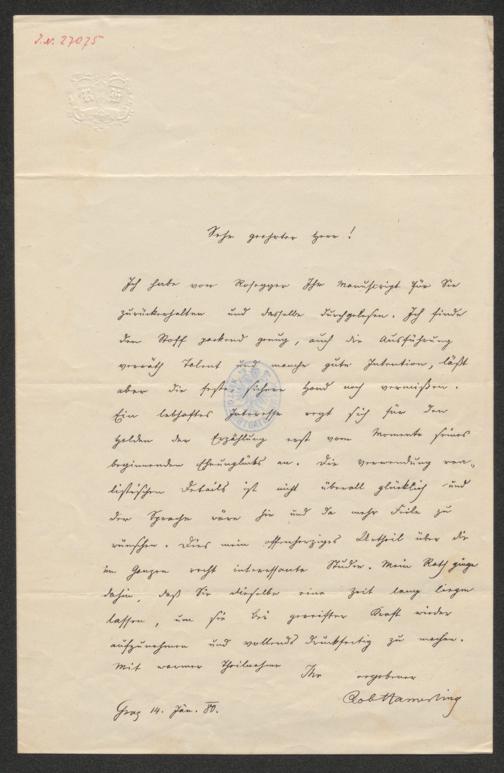 J.N. 27075
Sehr geehrter Herr!
Ich habe von Rosegger Ihr Manuscript für Sie
zurückerhalten und dasselbe durchgelesen. Ich finde
den Stoff packend genug, auch die Ausführung
verräth Talent und manche gute Intention, läßt
aber die feste, sichere Hand noch vermißen.
Ein lebhaftes Interesse regt sich für den
Helden der Erzählung erst vom Momente seines
beginnenden Eheunglücks an. Die Verwendung rea-
listischen Details ist nicht überall glücklich und
der Sprache wäre hie und da mehr Feile zu
wünschen. Dies mein offenherziges Urtheil über die
im Ganzen recht interessante Studie. Mein Rath ginge
dahin, daß Sie dieselbe eine Zeit lang liegen
lassen, um sie bei gereifter Kraft wieder
aufzunehmen und vollends druckfertig zu machen.
Mit warmer Theilnahme
Ihr ergebener
Rob Hamerling
Graz 14. Jän. 80.